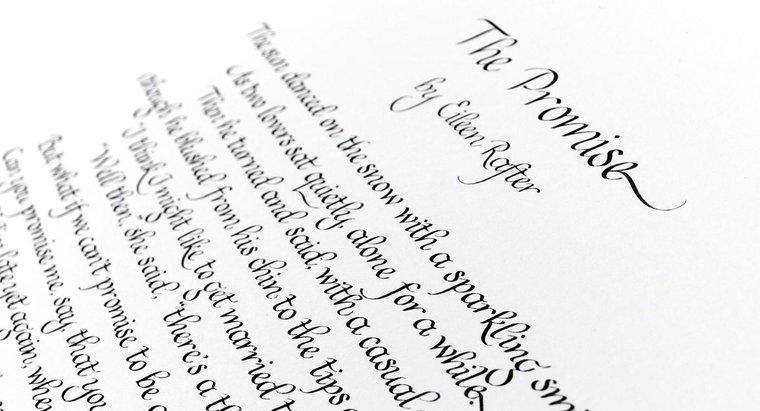 The Promise
by Eileen Rafter
The sun danced on the snow with a sparkling smi
As two lovers sat quietly, alone for a while.
Then he turned and said, with a casual
though he blushed from his chin to the tips o
"I think I might like to get married t
"Well then, she said, "there's a th
But what if we can't promise to be a
Can you promise me, say, that you
late yet again, whe